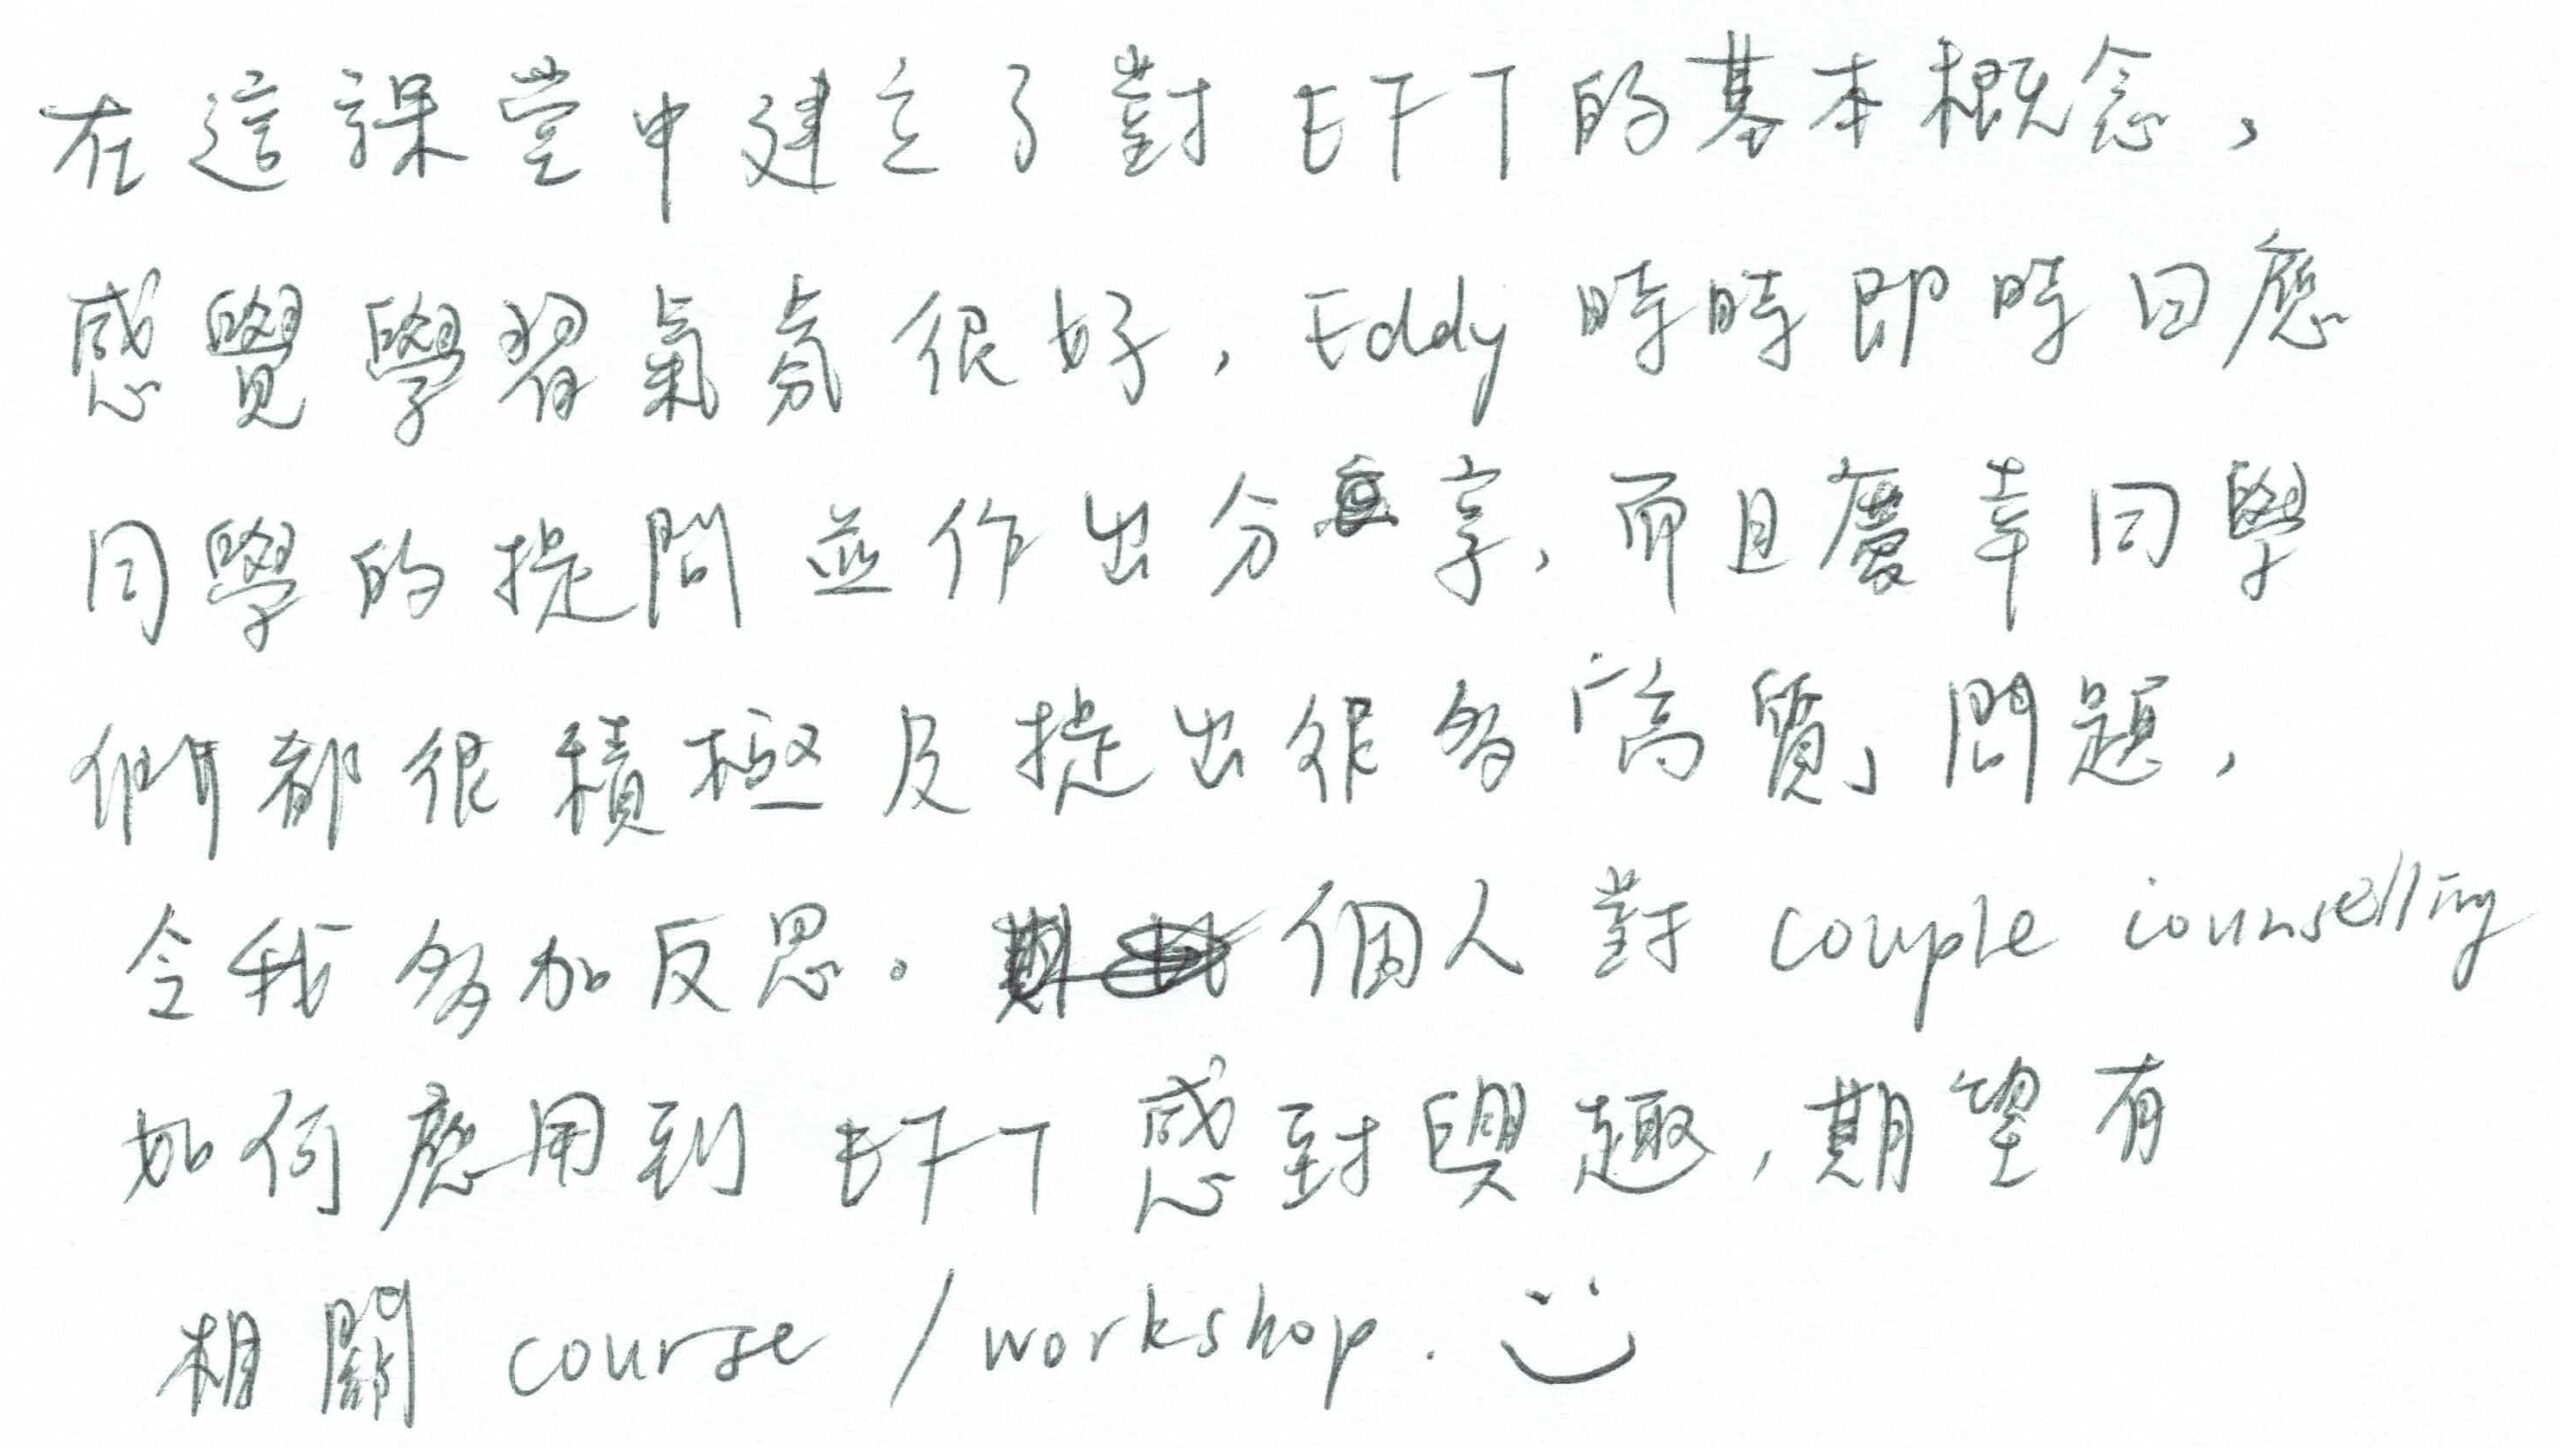 在這課堂中建立了對EFT的基本概念,
感覺學習氣氛很好, Eddy時時即時回應
同學的提問並作出分享, 而且慶幸同學
們都很積極及提出很多「高質」問題,
令我多加反思。個人對 couple counselling
如何應用到 EFT 感到興趣, 期望有
相關 course / workshop.